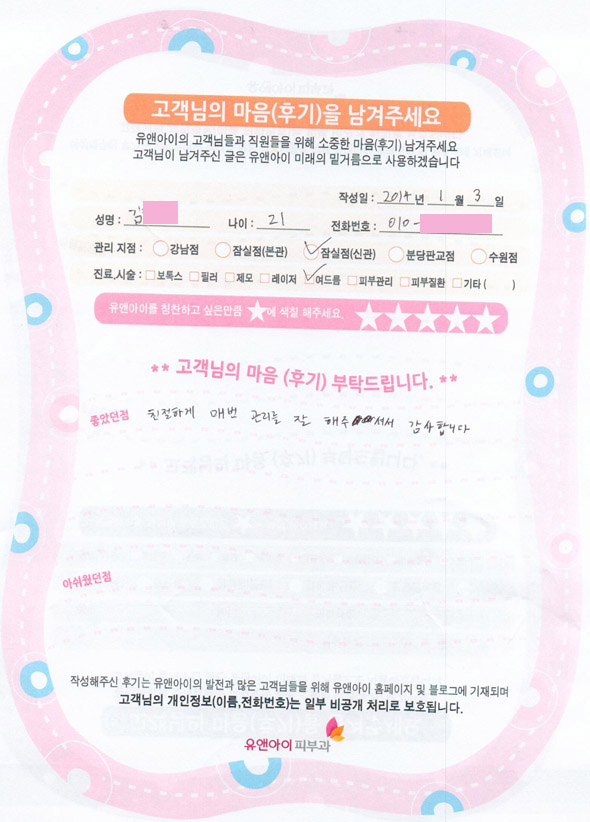 고객님의 마음(후기)을 남겨주세요
유앤아이의 고객님들과 직원들을 위해 소중한 마음(후기) 남겨주세요
고객님이 남겨주신 글은 유앤아이 미래의 밑거름으로 사용하겠습니다
작성일 : 2014 년 1 월 3 일
성명 : 김 나이 : 21 전화번호 : 010-
관리 지점 : 강남점 잠실점(본관) 잠실점(신관) 분당판교점 수원점
진료,시술 : 보톡스 필러 제모 레이저 여드름 피부관리 피부질환 기타 ( )
유앤아이를 칭찬하고 싶은만큼 ★에 색칠 해주세요. ★★★★★
** 고객님의 마음 (후기) 부탁드립니다. **
좋았던점 친절하게 매번 관리를 잘 해주셔서 감사합니다
아쉬웠던점
작성해주신 후기는 유앤아이의 발전과 많은 고객님들을 위해 유앤아이 홈페이지 및 블로그에 기재되며
고객님의 개인정보(이름,전화번호)는 일부 비공개 처리로 보호됩니다.
유앤아이 피부과